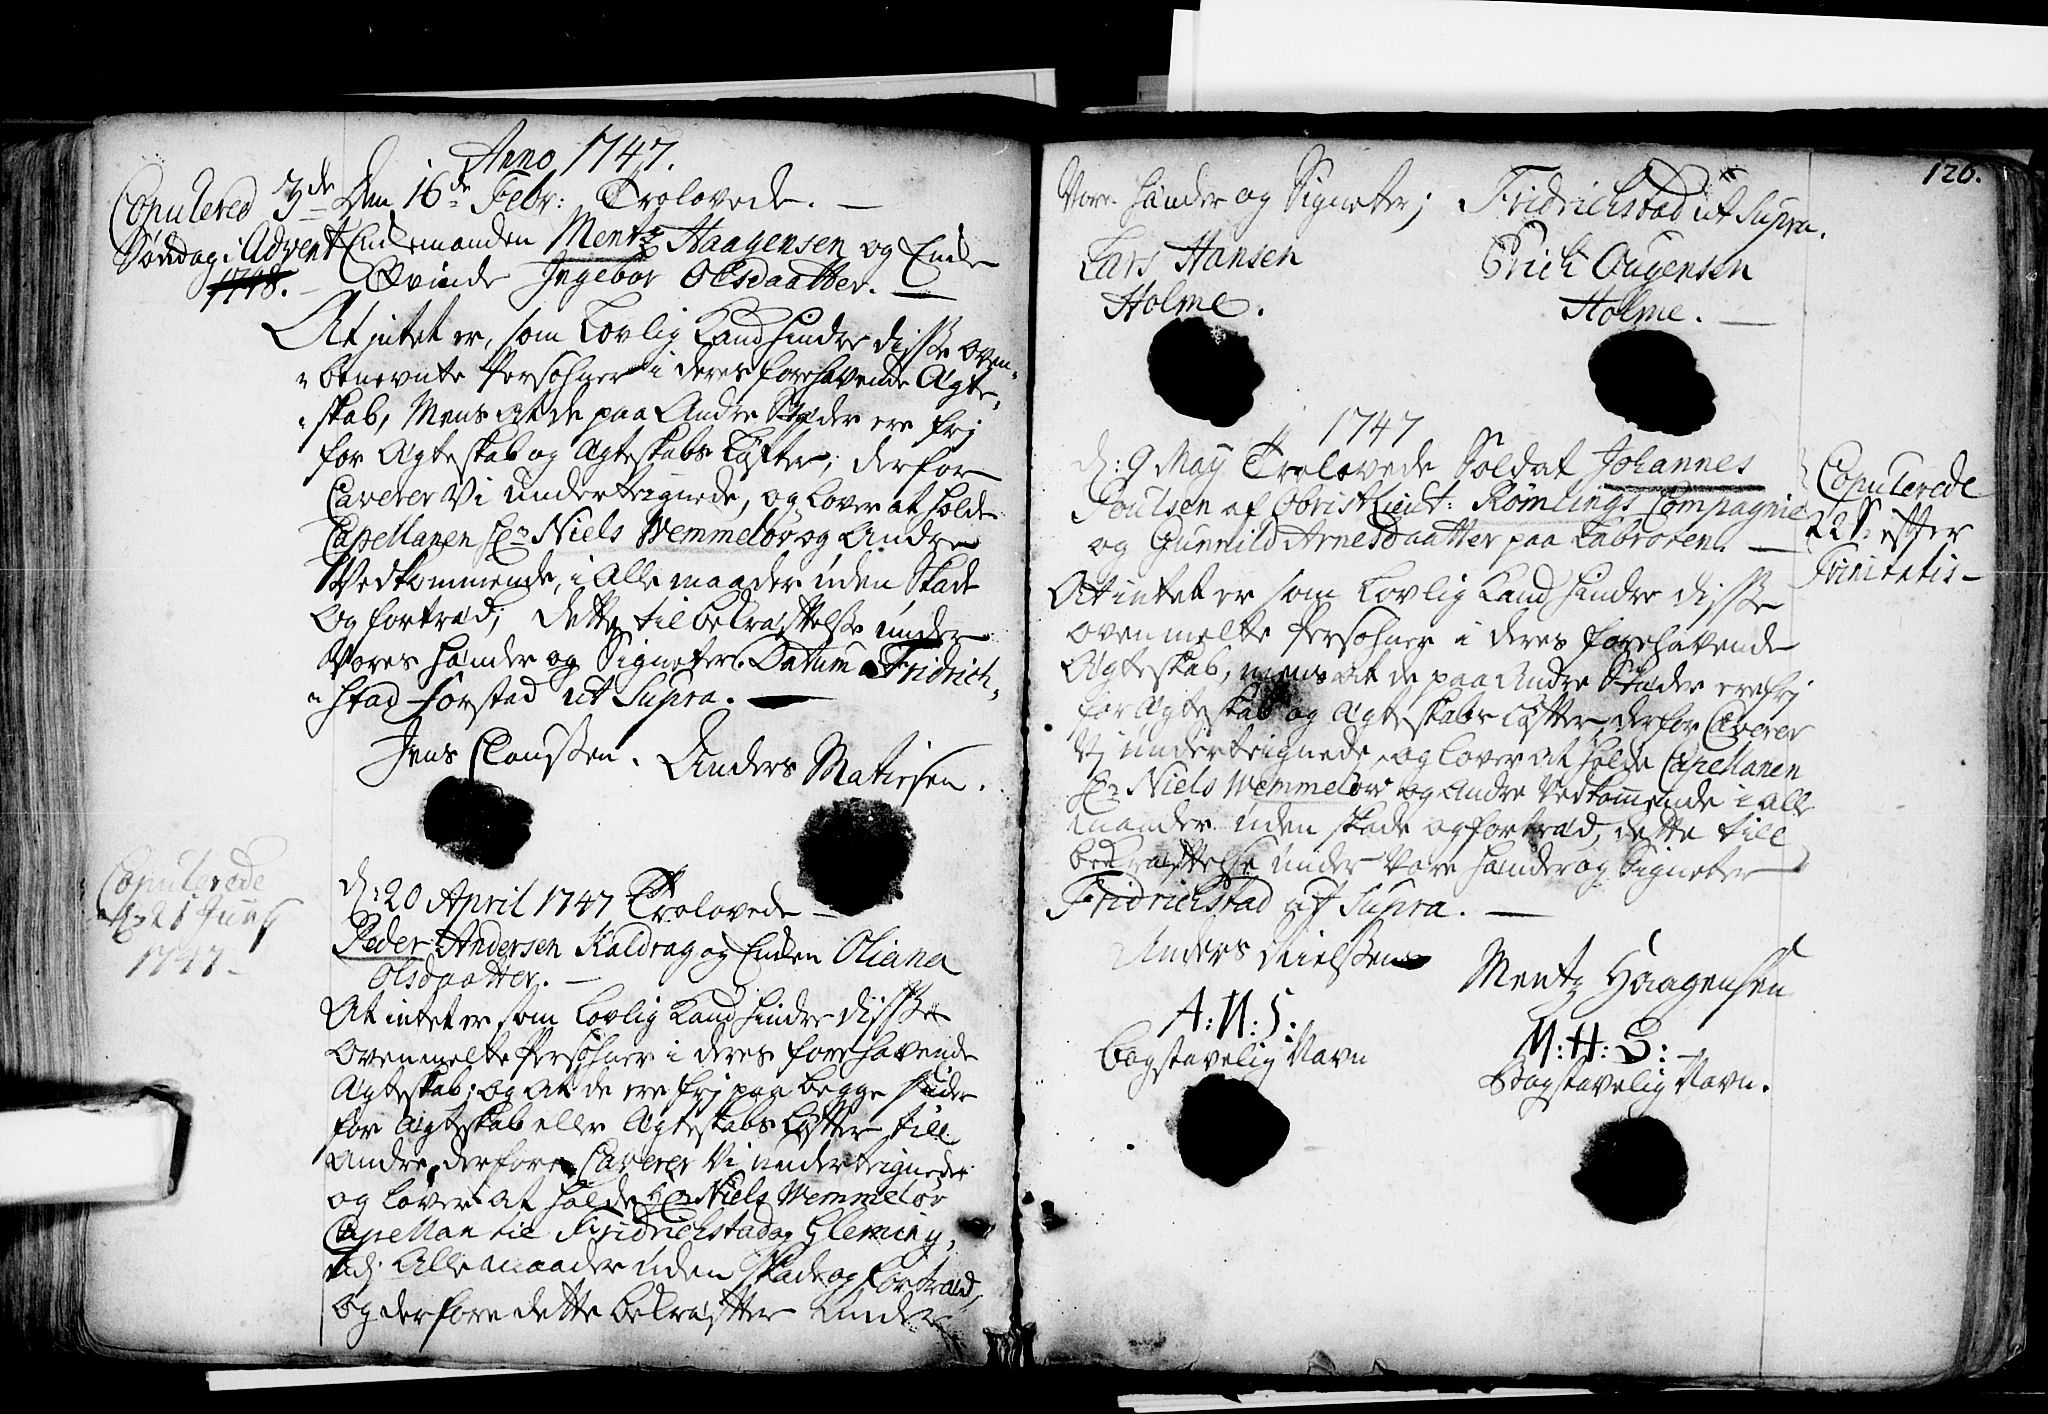 Anno 1747.
Copulered 3de
Søndag i Advent
1748.
Den 16de Febr: Trolovede. —
Enckemanden Mentz Haagensen og Encke
Qvinde Ingebor Olsdaatter. —
At intet er, som Lovlig Kand hindre disse oven-
benevnte Persohner i deres forehavende Ægte-
skab, Mens at de paa Andre Stæder ere frj
for Ægteskab og Ægteskabs Løfter, derfor
Caverer Vi underteignede, og lover at holde
Capellanen Hr Niels Wemmeløv og Andre
Vedkommende, i Alle maader uden Skade
og fortræd, dette til bekræftelse under
Vores hænder og Signeter. Datum Fridrich-
stad Forstad ut Supra. —
Jens Claussen. Anders Matiesen.
Copulerede
d: 21 Junij
1747 –
d: 20 April 1747 Trolovede —
Peder Andersen Kaldrag og Encken Oliana
Olsdaatter. —
At intet er som Lovlig Kand hindre disse
ovenmelte Persohner i deres forehavende
Ægteskab, og at de ere frj paa begge sider
for Ægteskab eller Ægteskabs Løfter till
Andre, derfore Caverer Vi underteignede
og lover at holde Hr Niels Wemmeløv
Capellan til Fridrichstad og Glemmy,
udj Alle maader uden Skade og fortræd,
og derfore dette bekræfter Under
126.
Vore hænder og Signeter; Fridrichstad ut Supra.
Lars Hansen Erich Ougensen
Holme. Holme. —
1747
d: 9 May Trolovede Soldat Johannes
Poulsen af Obristlieut: Rømlings Compagnie
og Gunnild Arnesdaatter paa Labroren. —
Copulerede
22 S: efter
Trinitatis –
At intet er som Lovlig Kand hindre disse
ovenmelte Persohner i deres forehavende
Ægteskab, mens at de paa Andre Stæder ere frj
for Ægteskab og Ægteskabs Løfter, derfor Caverer
Vj underteignede, og lover at holde Capellanen
Hr Niels Wemmeløv og Andre Vedkommende i alle
maader uden skade og fortræd, dette till
bekræftelse under Vore hænder og Signeter
Fridrichstad ut Supra. —
Anders Nielssen Mentz Haagensen
A: N: S: M: H: S: –
bogstavelig Navn Bogstavelig Navn.